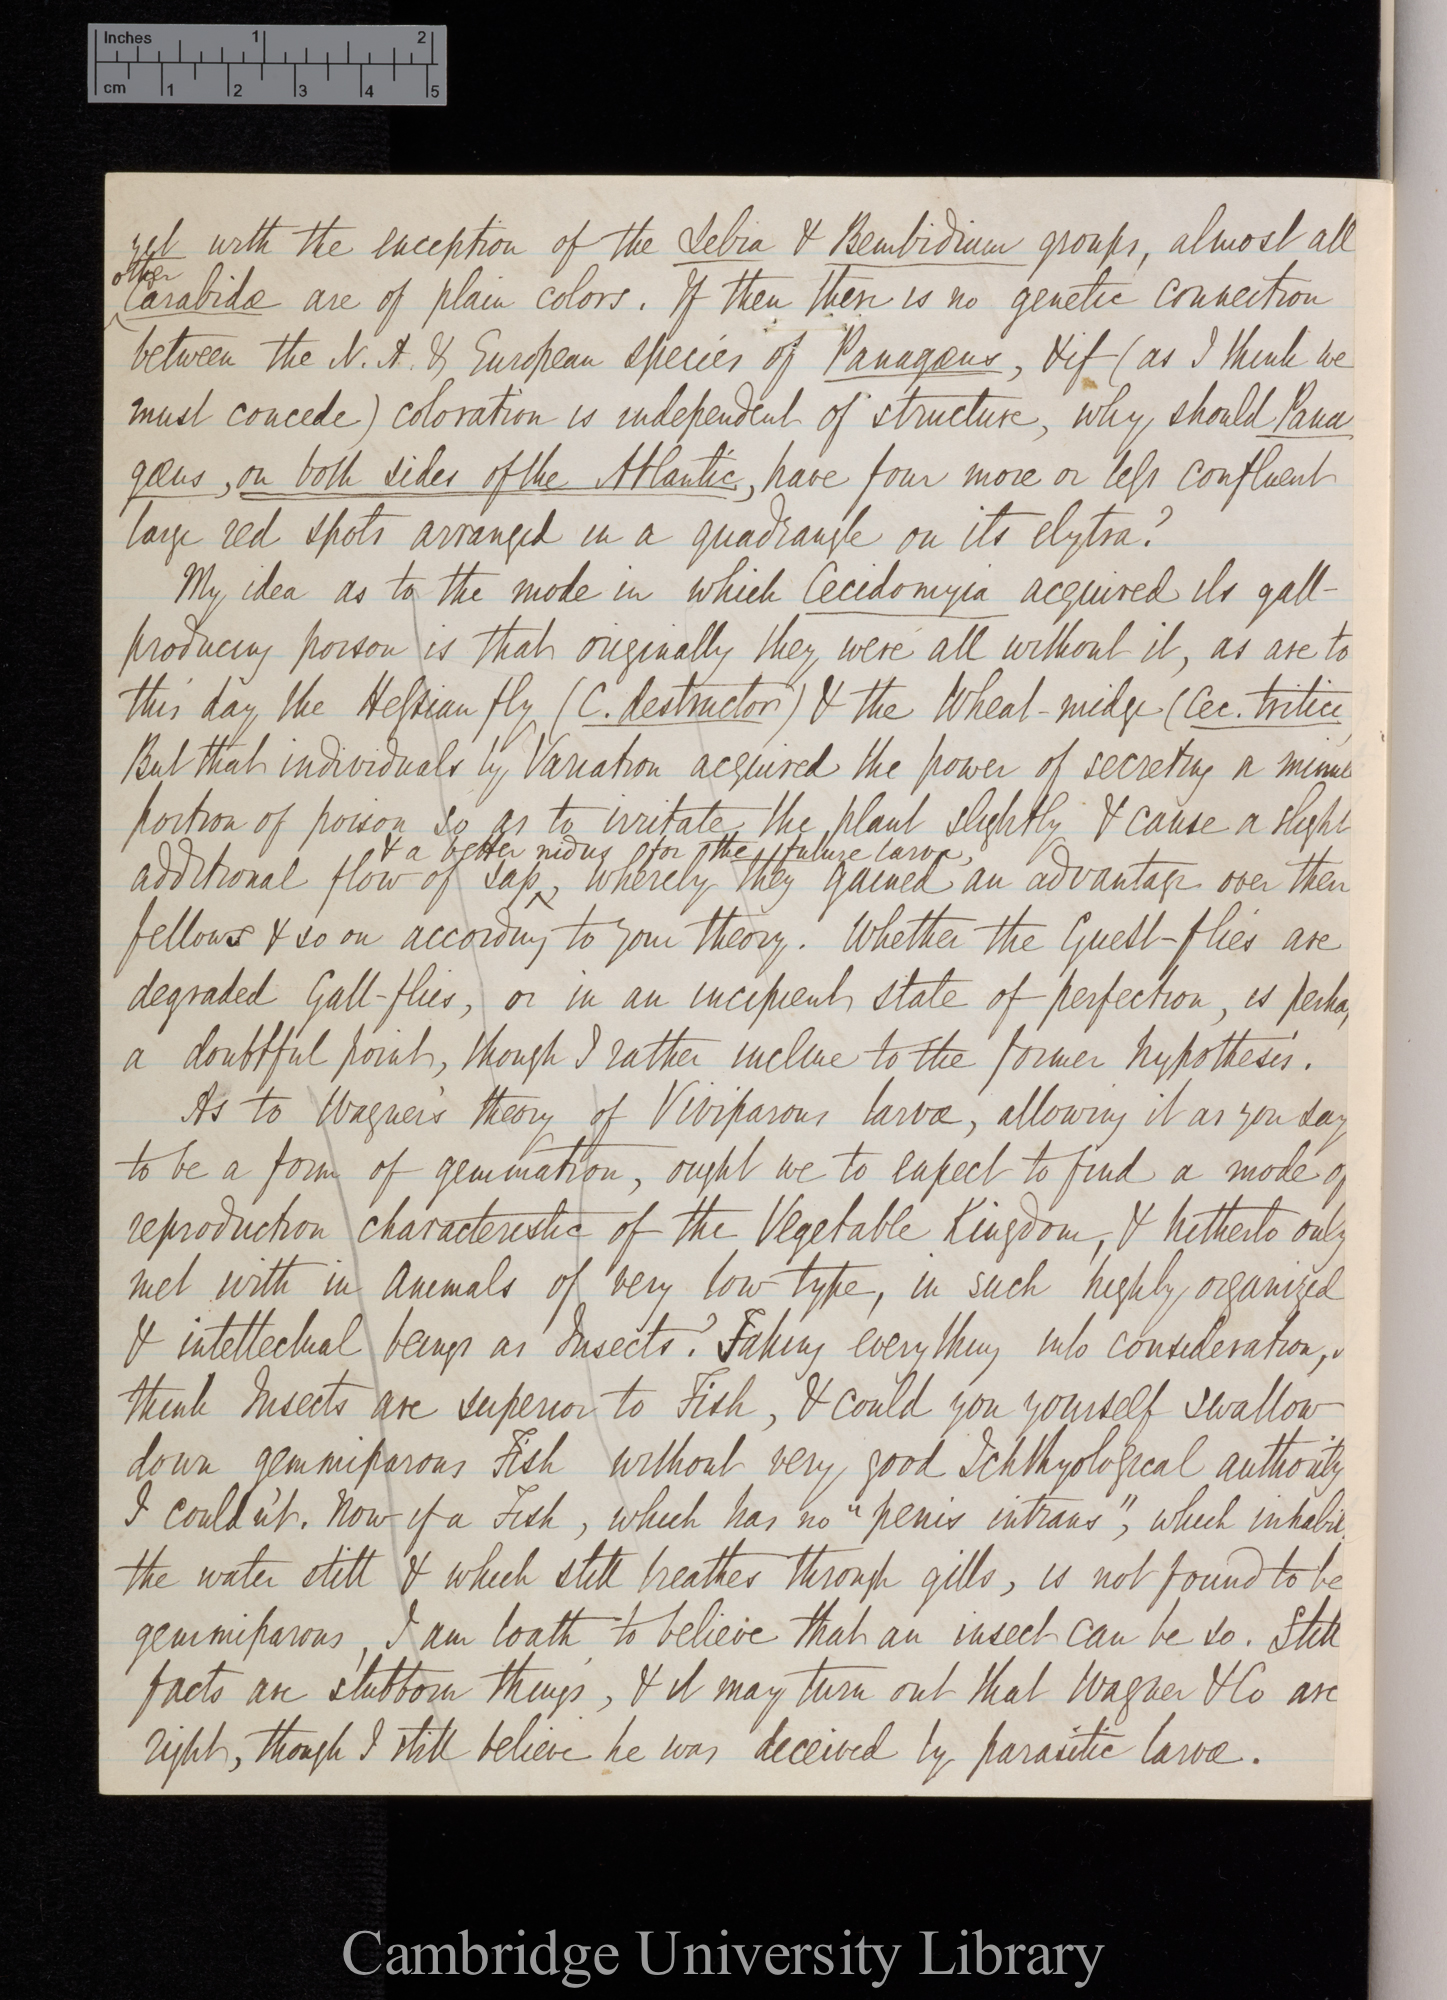 Inches 1 2
cm 1 2 3 4 5
yet with the exception of the Lebia & Bembidium groups, almost all
other
Carabidæ are of plain colors. If then there is no genetic connection
between the N. A. & European species of Panagæus, & if (as I think we
must concede) coloration is independent of structure, why should Pana
gæus, on both sides of the Atlantic, have four more or less confluent
large red spots arranged in a quadrangle on its elytra?
My idea as to the mode in which Cecidomyia acquired its gall-
producing poison is that originally they were all without it, as are to
this day the Hessian fly (C. destructor) & the Wheat-midge (Cec. tritici
But that individuals by Variation acquired the power of secreting a minu
portion of poison so as to irritate the plant slightly & cause a slight
& a better nidus for the future larva,
additional flow of sap, whereby they gained an advantage over their
fellows & so on according to your theory. Whether the Guest-flies are
degraded Gall-flies, or in an incipient state of perfection, is perha
a doubtful point, though I rather incline to the former hypothesis.
As to Wagner's theory of Viviparous larvæ, allowing it as you say
to be a form of gemmation, ought we to expect to find a mode of
reproduction characteristic of the Vegetable Kingdom, & hitherto only
met with in Animals of very low type, in such highly organized
& intellectual beings as Insects? Taking everything into consideration,
think Insects are superior to Fish, & could you yourself swallow
down gemmiparous Fish without very good Ichthyological authority
I couldn't. Now if a Fish, which has no "penis intrans", which inhabit
the water still & which still breathes through gills, is not found to be
gemmiparous, I am loath to believe that an insect can be so. Still
facts are stubborn things, & it may turn out that Wagner & Co are
right, though I still believe he was deceived by parasitic larvæ.
Cambridge University Library